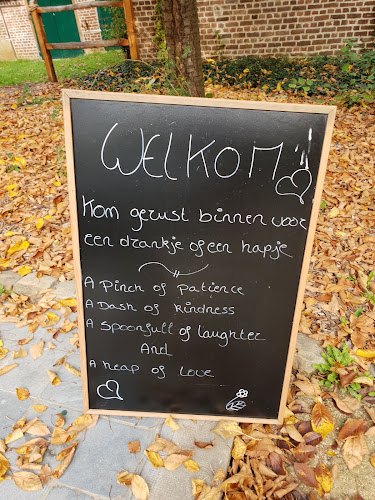 WELKOM!
Kom gerust binnen voor
een drankje of een hapje
A Pinch of patience
A Dash of kindness
A spoonfull of laughter
And
A heap of love